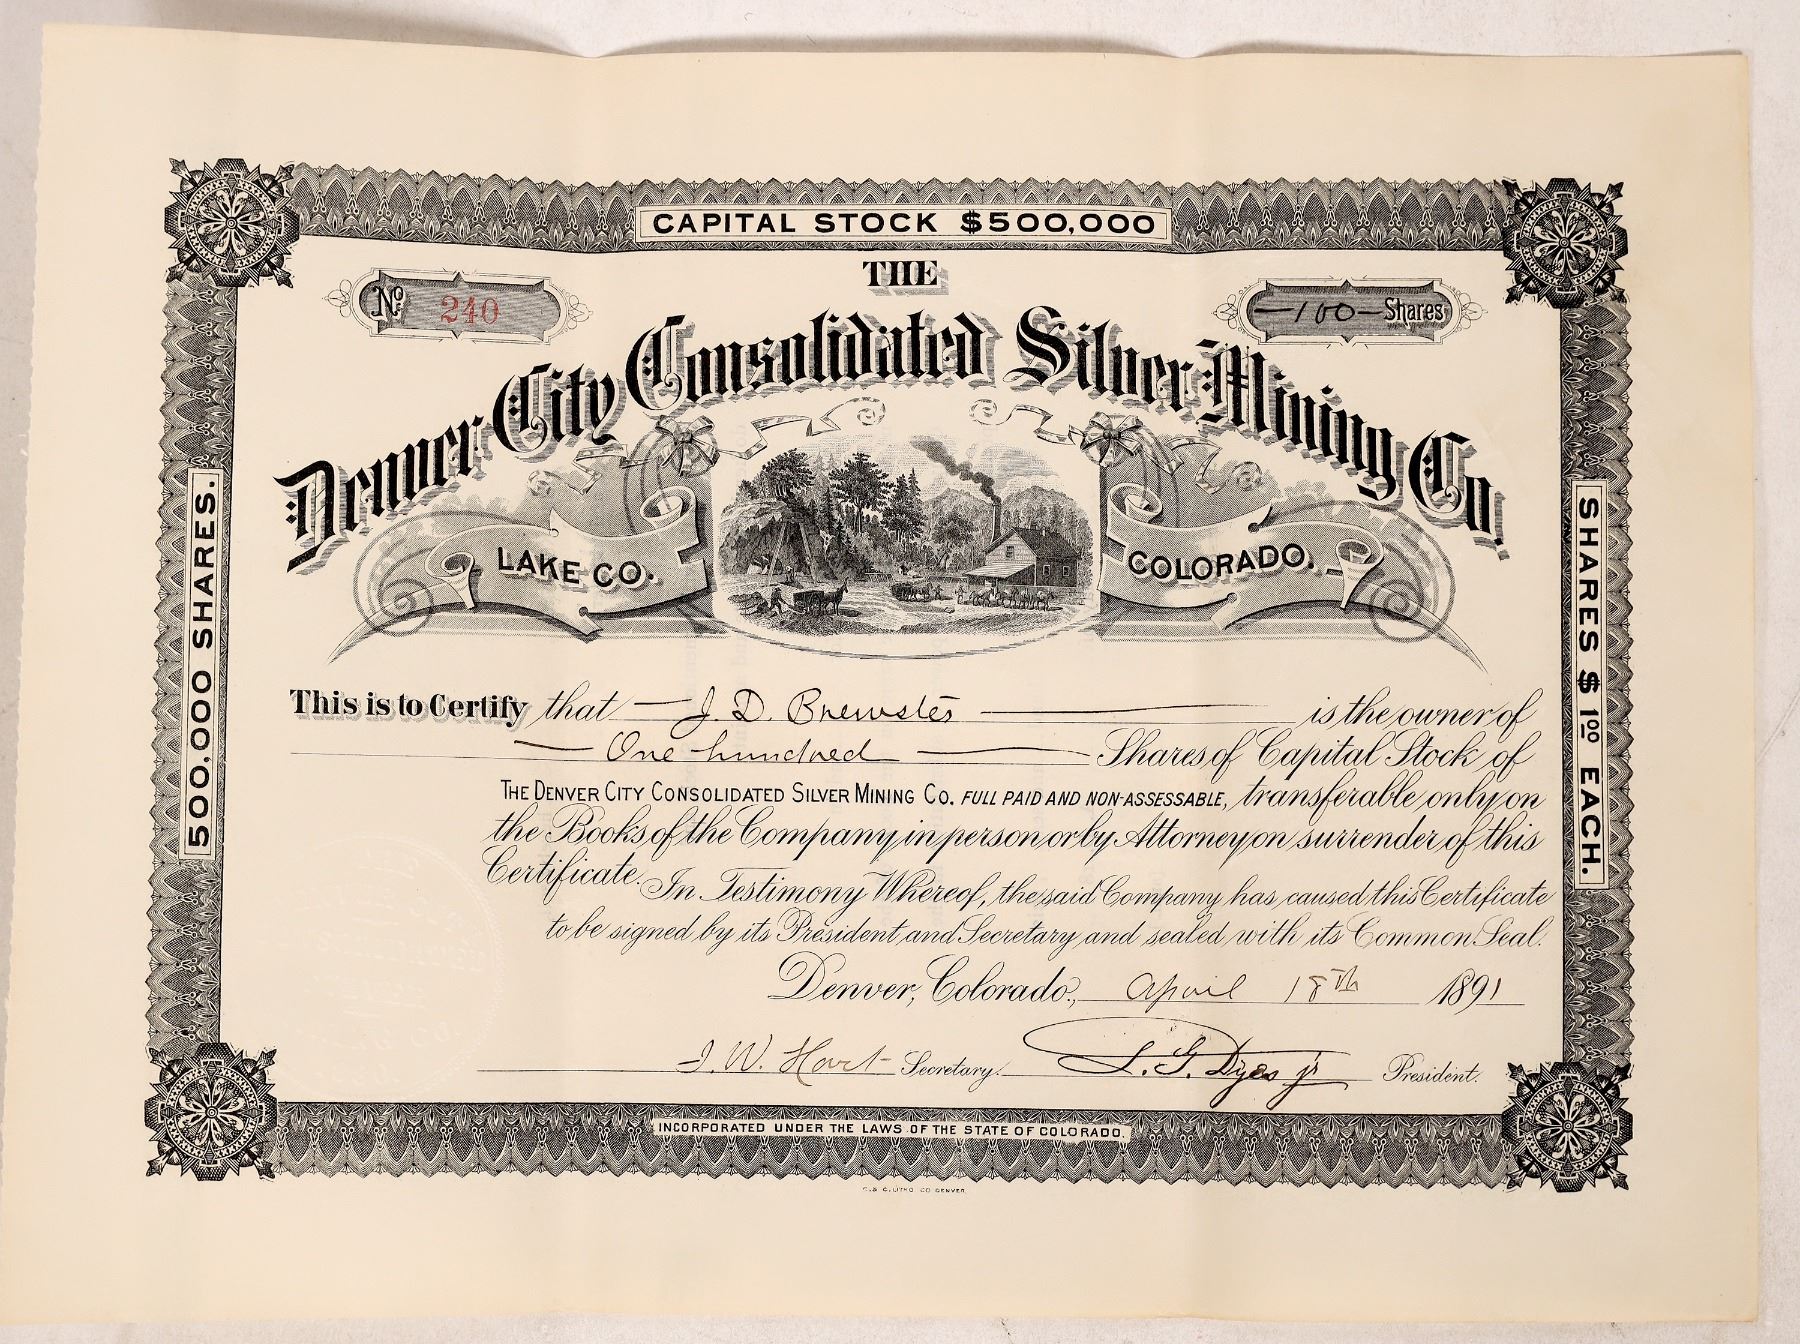 CAPITAL STOCK $500,000
THE
No. 240
—100— Shares
Denver City Consolidated Silver Mining Co.
LAKE CO.
COLORADO.
500,000 SHARES.
SHARES $100 EACH.
This is to Certify that — J. D. Brewster — is the owner of
— One hundred — Shares of Capital Stock of
THE DENVER CITY CONSOLIDATED SILVER MINING CO. FULL PAID AND NON-ASSESSABLE, transferable only on
the Books of the Company in person or by Attorney on surrender of this
Certificate. In Testimony Whereof, the said Company has caused this Certificate
to be signed by its President and Secretary and sealed with its Common Seal.
Denver, Colorado, April 18th 1891
J. W. Hart Secretary. President.
INCORPORATED UNDER THE LAWS OF THE STATE OF COLORADO.
LITHO. CO. DENVER.